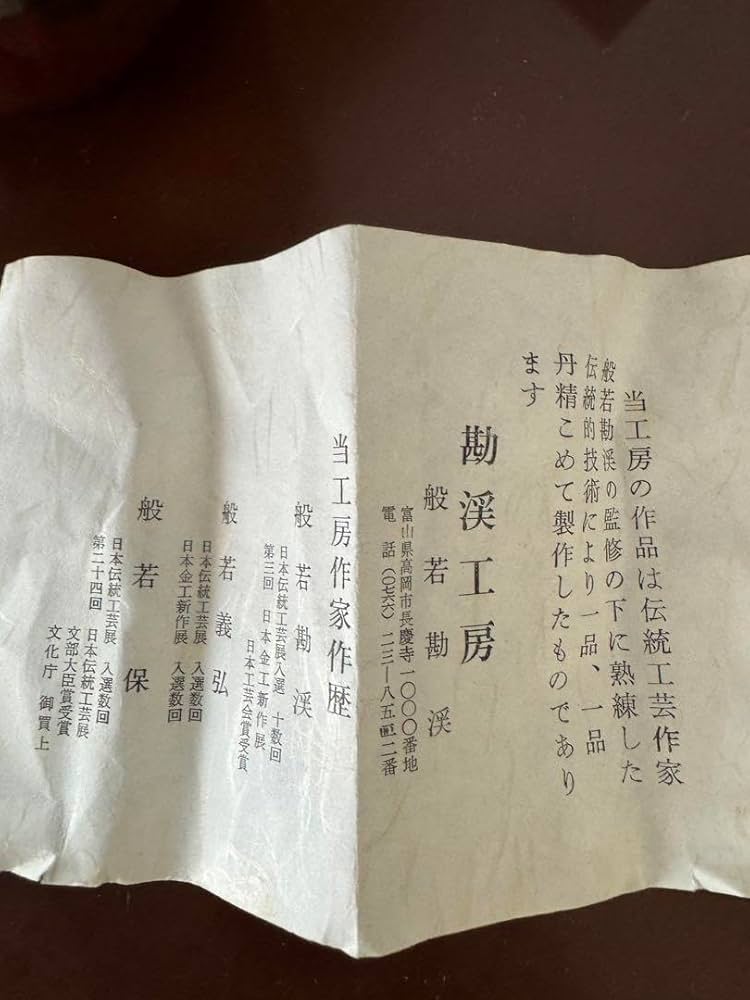 当工房の作品は伝統工芸作家
般若勘渓の監修の下に熟練した
伝統的技術により一品、一品
丹精こめて製作したものであり
ます
勘渓工房
般若勘渓
富山県高岡市長慶寺一〇〇〇番地
電話(〇七六六)二三―八五 二番
当工房作家作歴
般若勘渓
日本伝統工芸展入選 十数回
第三回 日本金工新作展
日本工芸会賞受賞
般若義弘
日本伝統工芸展 入選数回
日本金工新作展 入選数回
般若保
日本伝統工芸展 入選数回
第二十四回 日本伝統工芸展
文部大臣賞受賞
文化庁 御買上